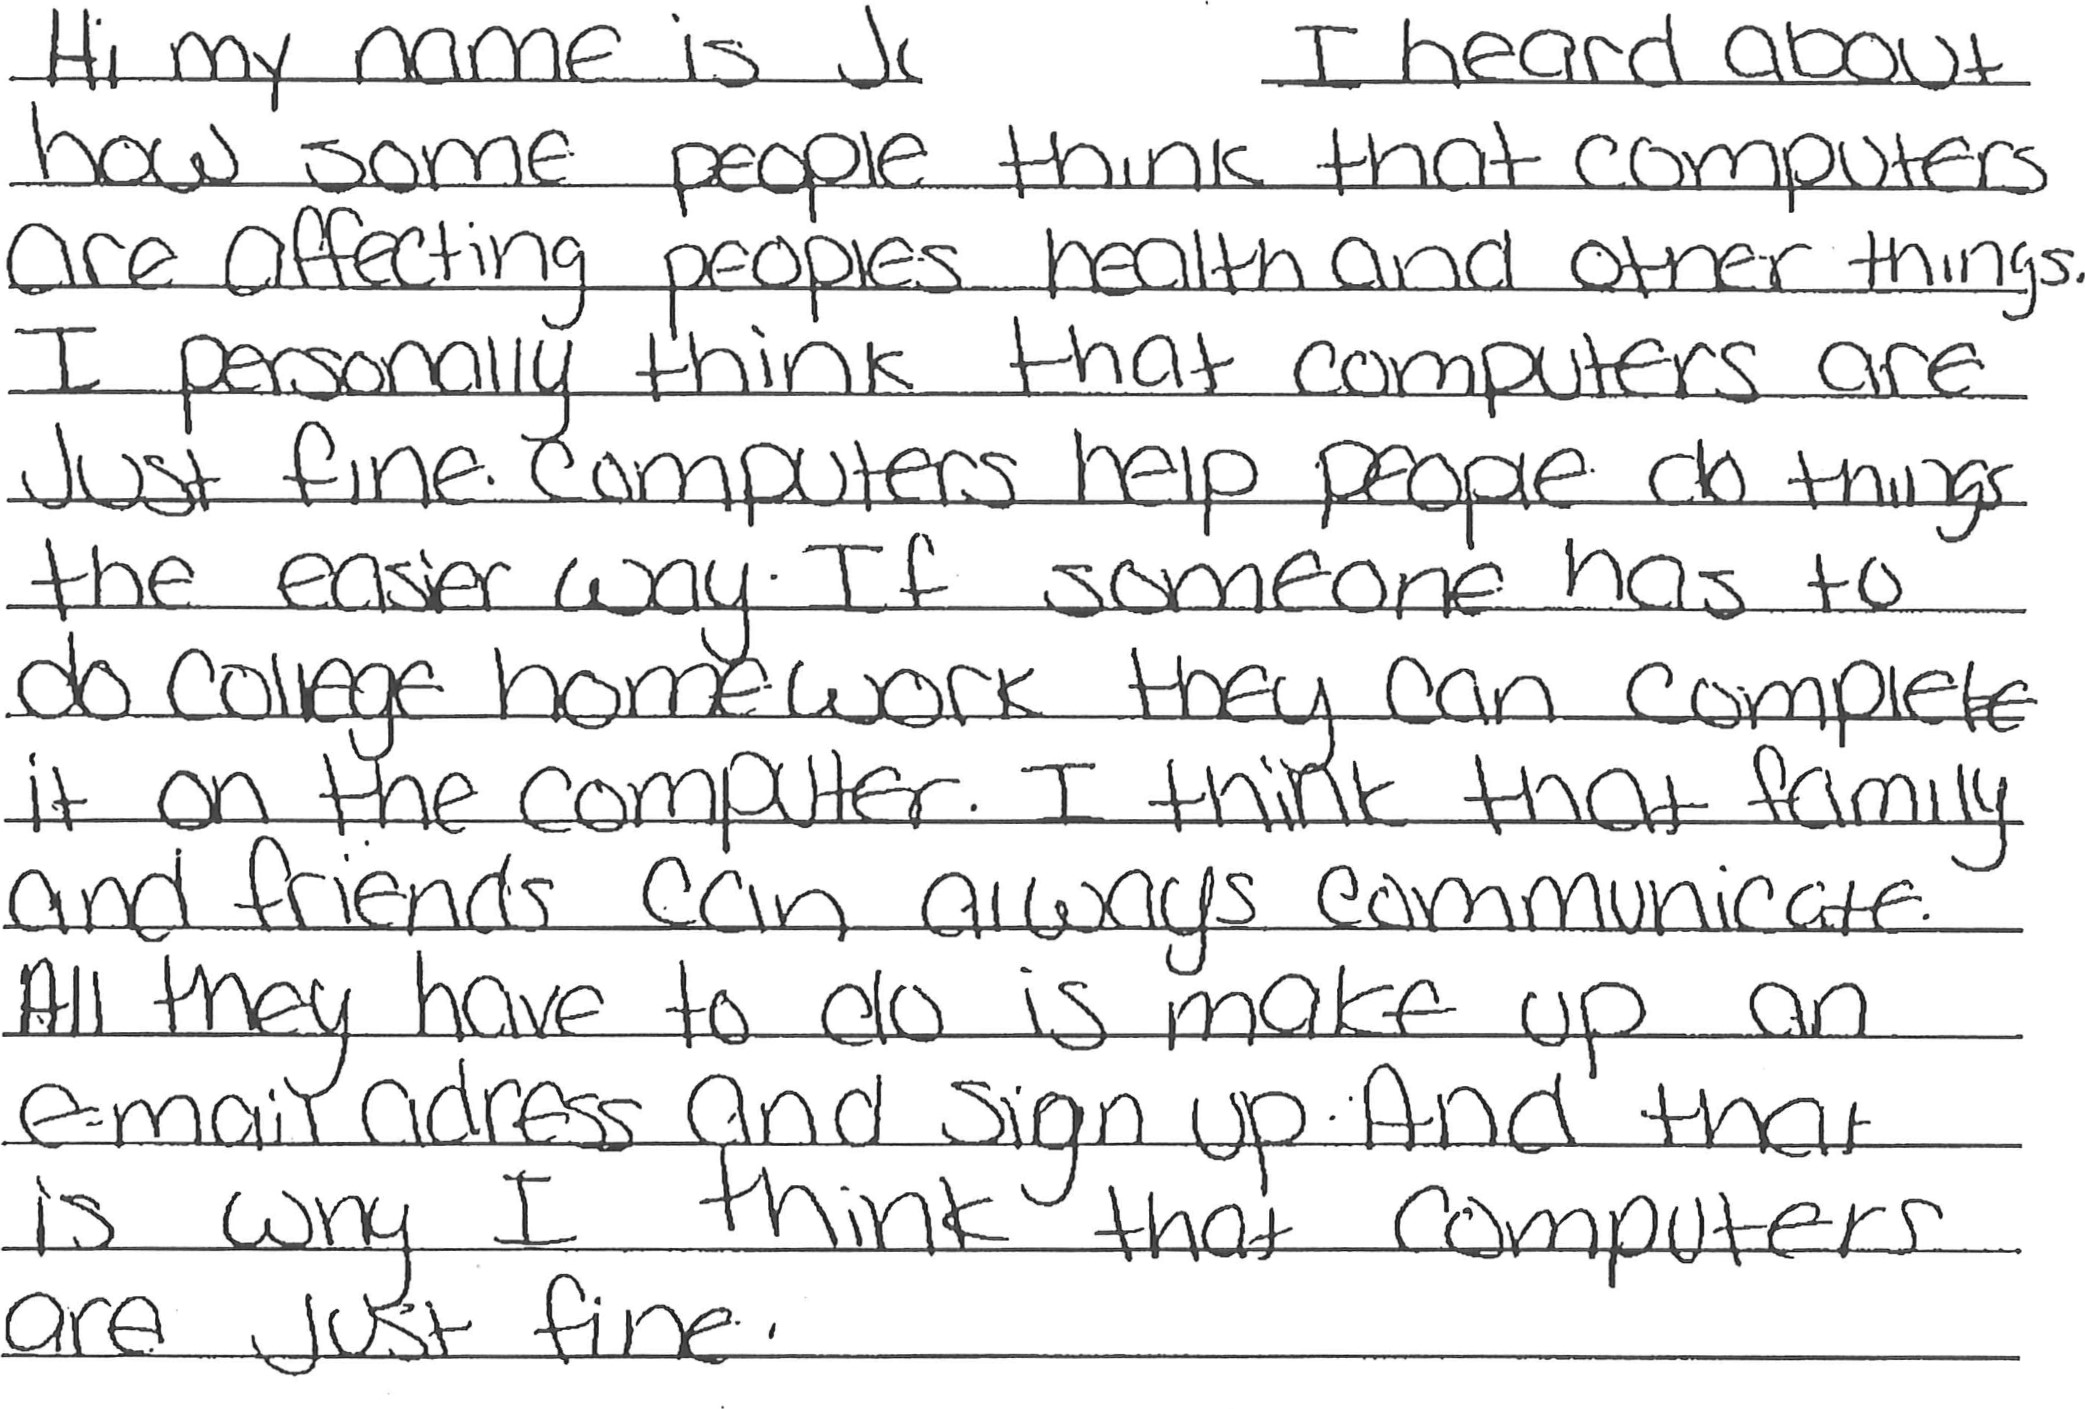 Hi my name is I heard about
how some people think that computers
are affecting peoples health and other things.
I personally think that computers are
Just fine. Computers help people do things
the easier way. If someone has to
do college homework they can complete
it on the computer. I think that family
and friends can always communicate.
All they have to do is make up an
e-mail adress and sign up. And that
is why I think that computers
are just fine.